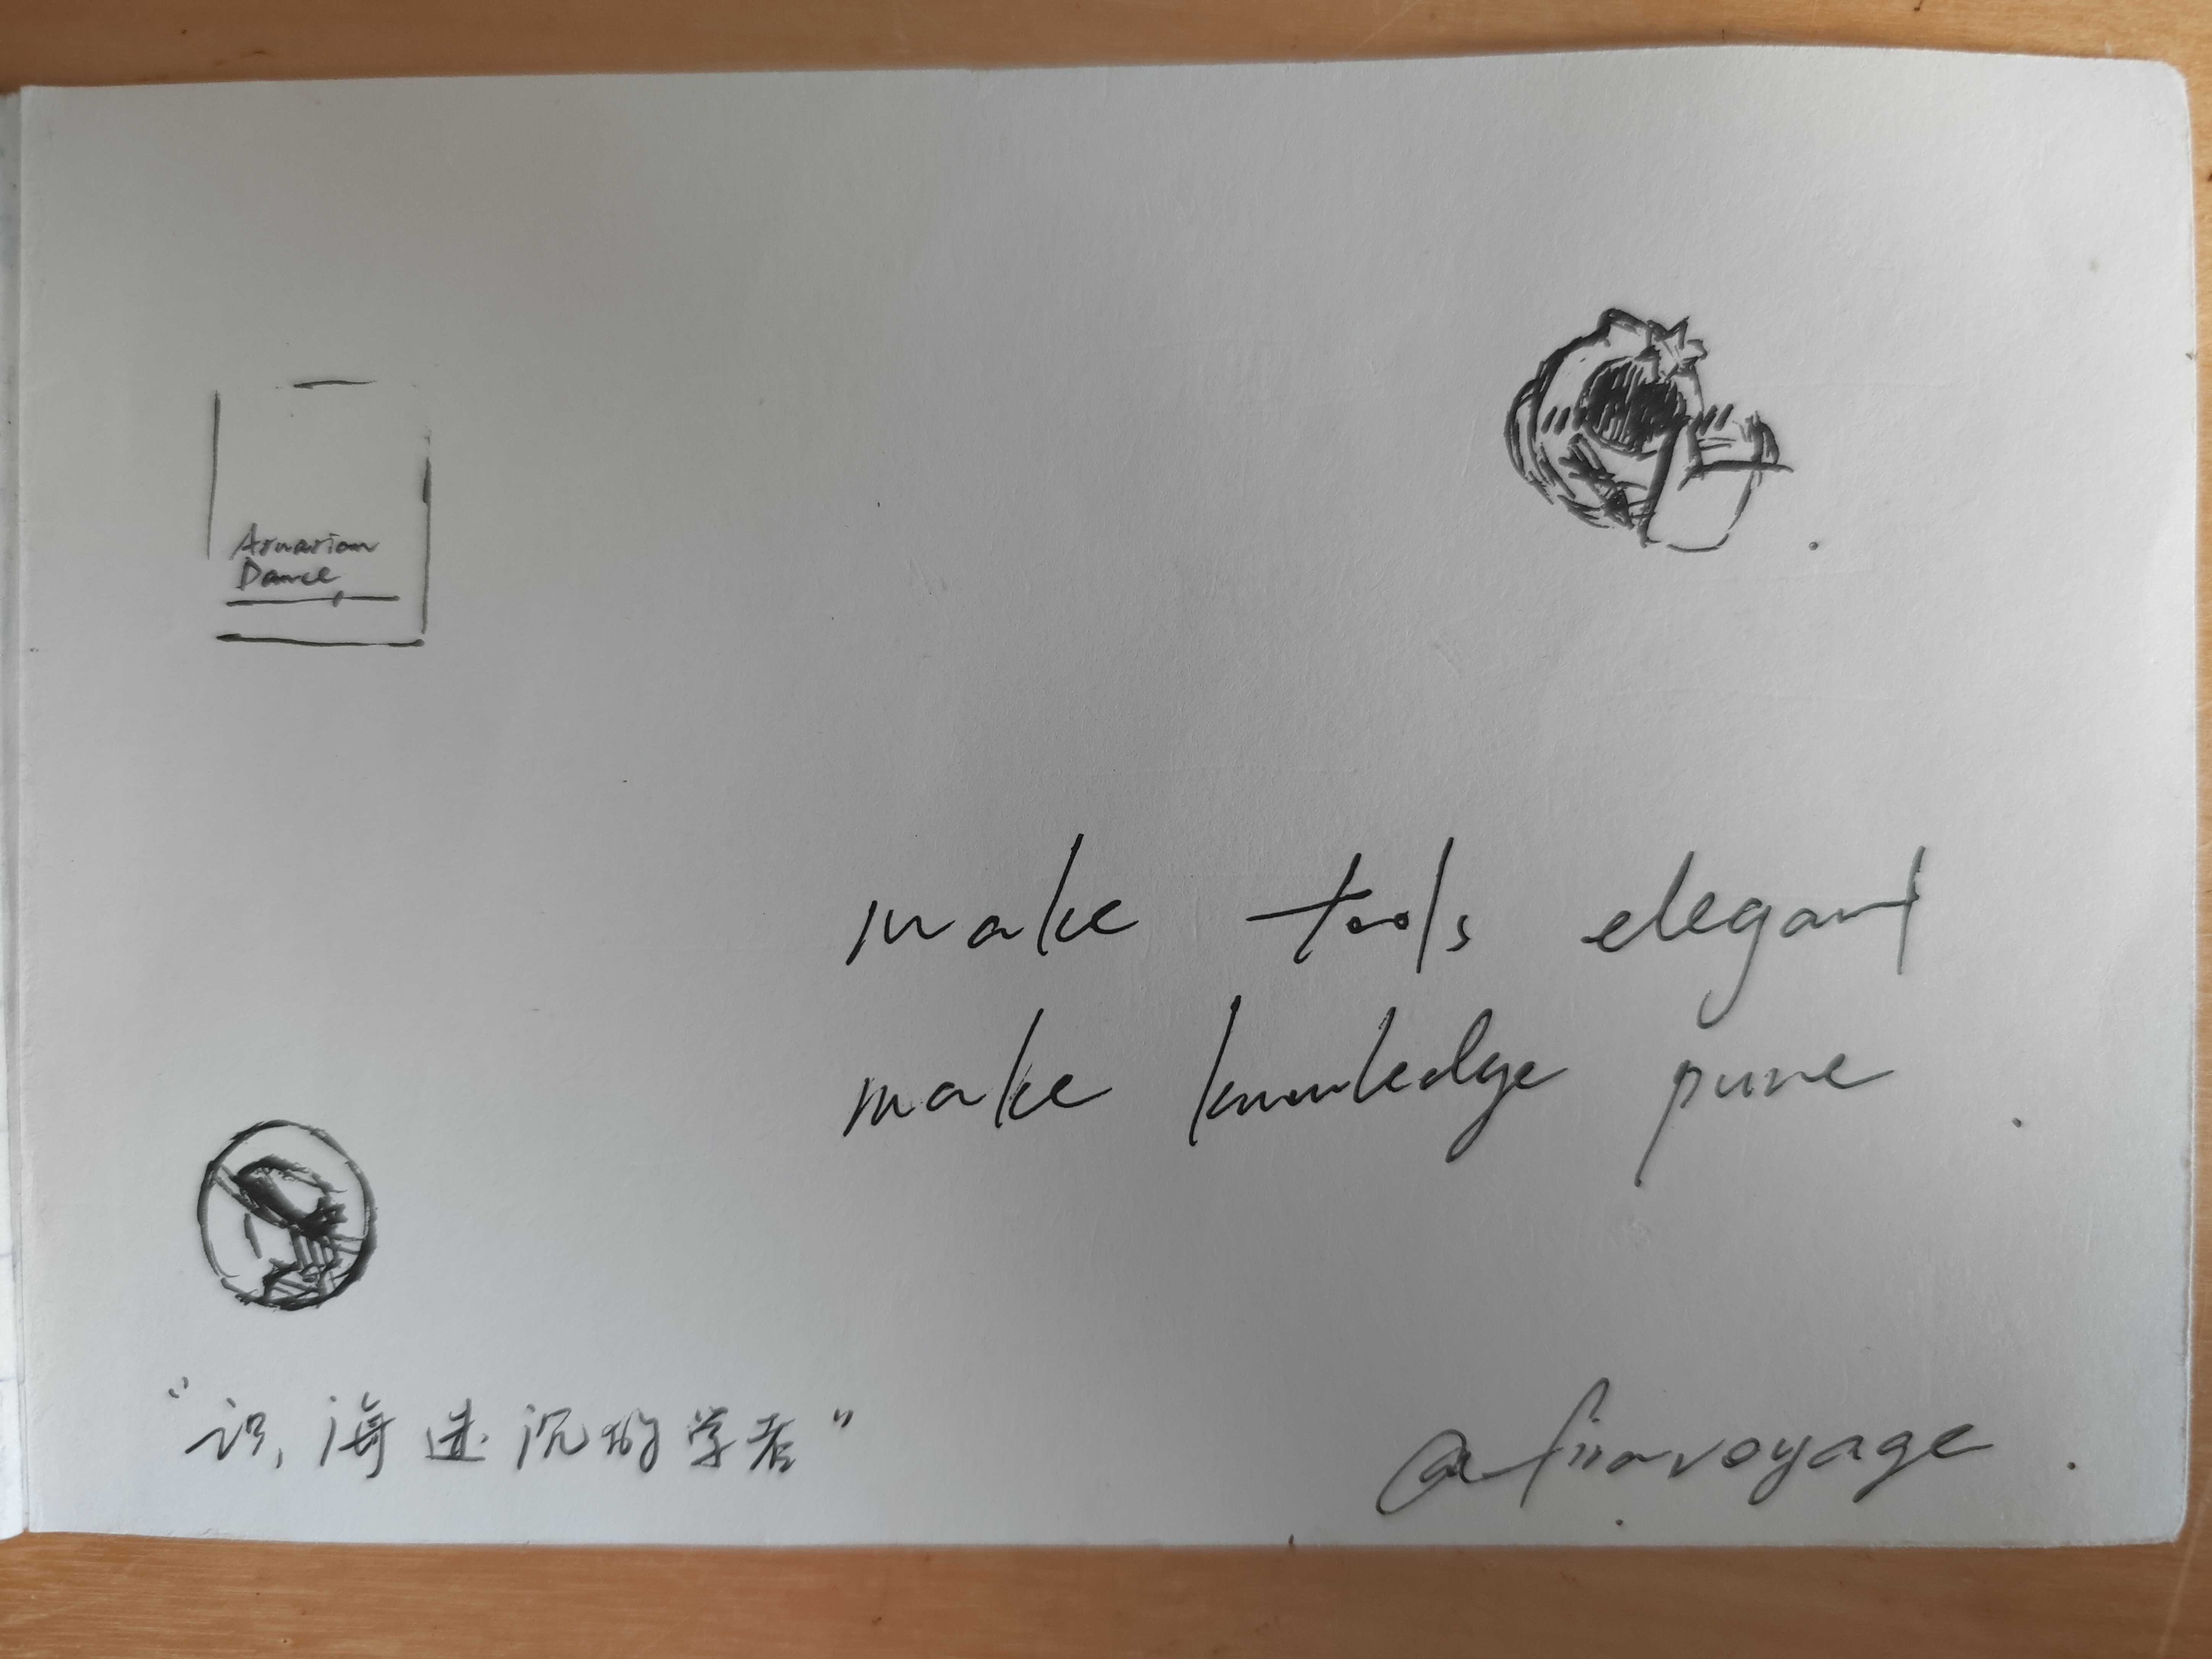 Aruarian
Dance
make tools elegant
make knowledge pure
"识海迷沉的学者"
@afiavoyage